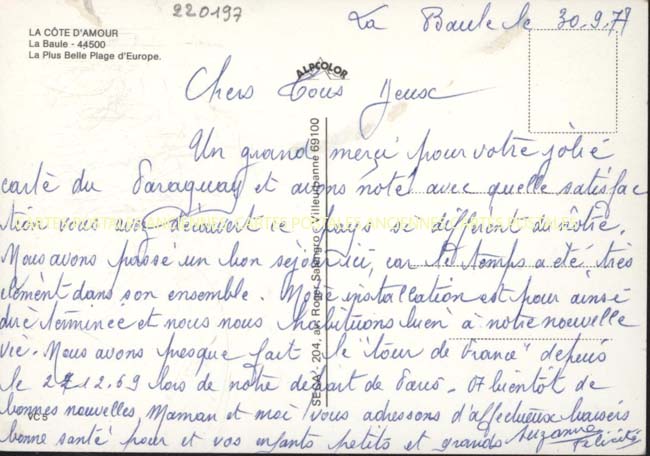 220197
La Baule le 30.9.77
LA CÔTE D'AMOUR
La Baule - 44500
La Plus Belle Plage d'Europe.
ALPCOLOR
Chers Tous Deux
Un grand merci pour votre jolie
carte du Paraguay et avons noté avec quelle satisfac
tion vous avez découvert ce pays si différent du nôtre.
Nous avons passé un bon séjour ici, car le temps a été très
clément dans son ensemble. Notre installation est pour ainsi
dire terminée et nous nous habituons bien à notre nouvelle
vie. Nous avons presque fait le "tour de France" depuis
le 2 12.69 lors de notre départ de Paris - A bientôt de
bonnes nouvelles, Maman et moi vous adressons d'affectueux baisers
bonne santé pour et vos enfants petits et grands Suzanne
Félicité
VC 5
SESA - 204, av. Roger Salengro Villeurbanne 69100
CARTES POSTALES ANCIENNES CARTES POSTALES ANCIENNES CARTES POSTALES